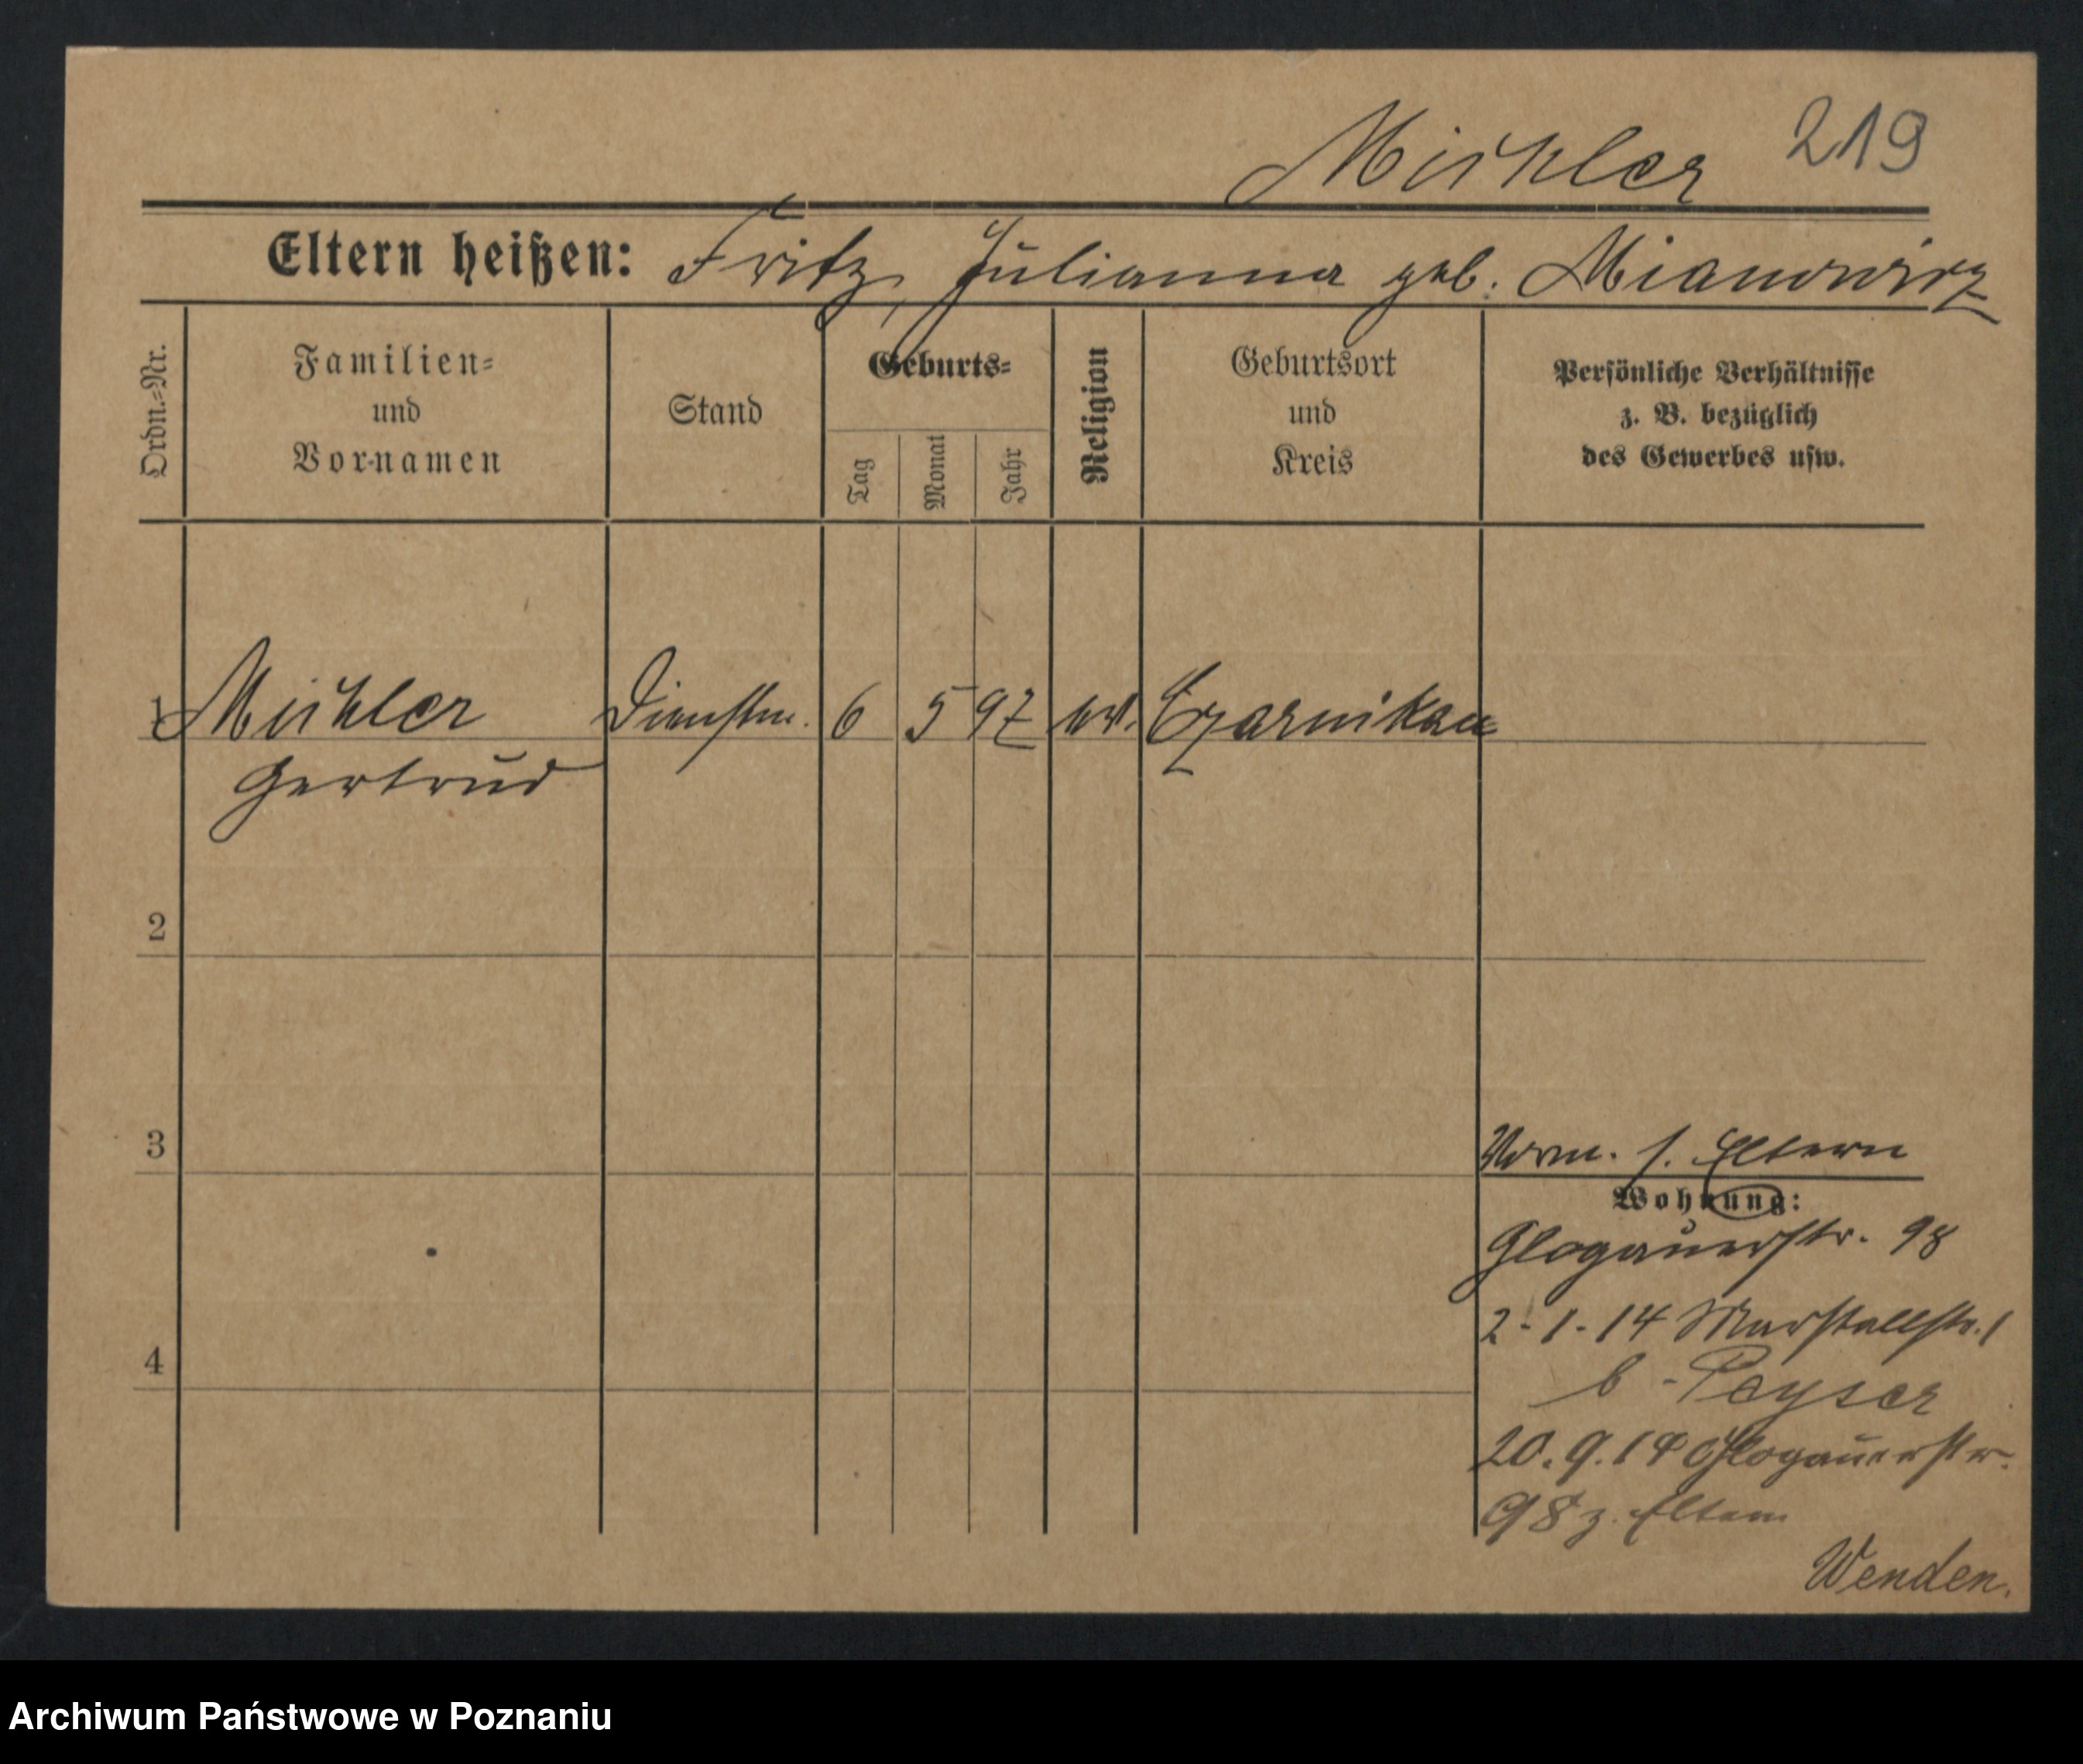 Mirhler 219
Eltern heißen: Fritz, Julianna geb. Mianowicz
Ordn.-Nr.
Familien-
und
Vornamen
Stand
Geburts-
Tag
Monat
Jahr
Religion
Geburtsort
und
Kreis
Persönliche Verhältnisse
z. B. bezüglich
des Gewerbes usw.
1 Dienstm. 6 5 97 Czarnikau
Gertrud
2
3
Vorm. s. Eltern
Wohnung:
Glogauerstr. 98
2-1-14 Marstallstr. 1
4
b - Peyser
20.9.14 Glogauerstr.
98 z. Eltern
Wenden.
Archiwum Państwowe w Poznaniu